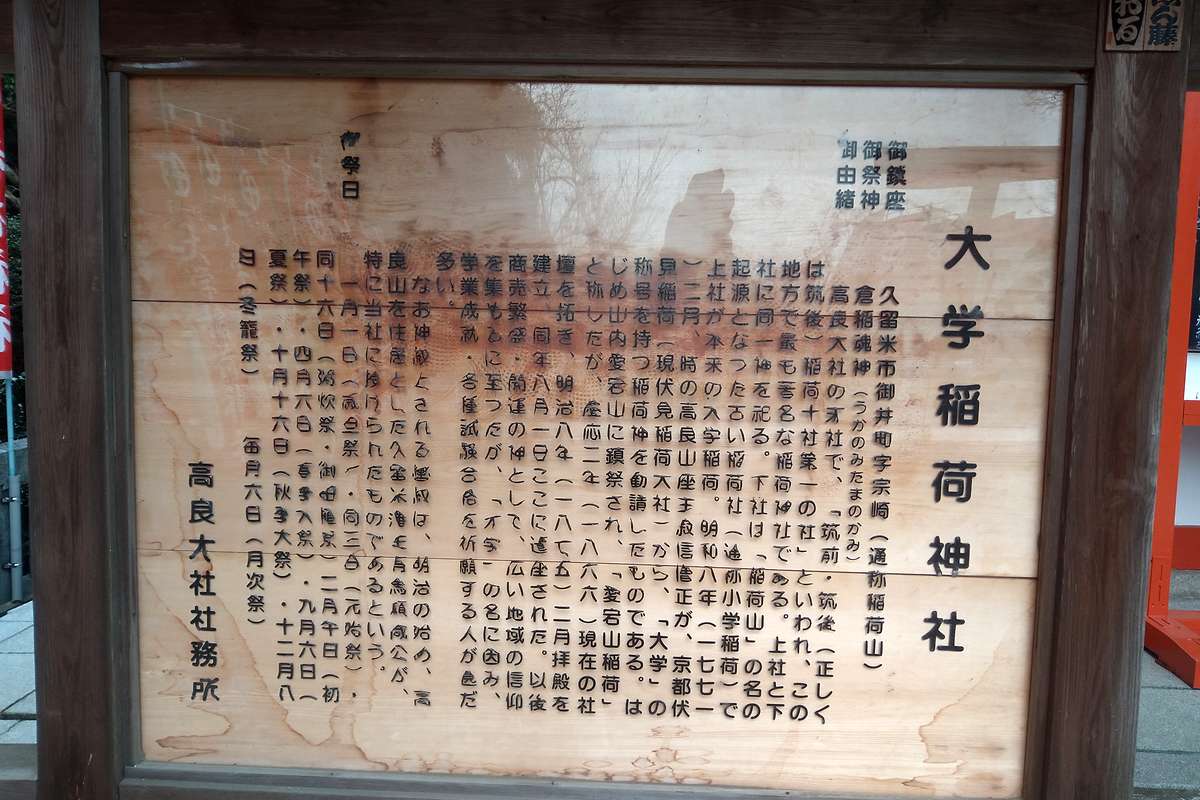 大学稲荷神社
御鎮座 久留米市御井町字宗崎（通称稲荷山）
御祭神 倉稲魂神（うかのみたまのかみ）
御由緒 高良大社の末社で、「筑前・筑後（正しく
は筑後）稲荷十社第一の社」といわれ、この
地方で最も著名な稲荷神社である。上社と下
社に同一神を祀る。下社は「稲荷山」の名の
起源となつた古い稲荷社（通称小学稲荷）で
上社が本来の大学稲荷。明和八年（一七七一
）二月、時の高良山座主寂信僧正が、京都伏
見稲荷（現伏見稲荷大社）から、「大学」の
称号を持つ稲荷神を勧請したものである。は
じめ山内愛宕山に鎮祭され、「愛宕山稲荷」
と称したが、慶応二年（一八六六）現在の社
壇を拓き、明治八年（一八七五）二月拝殿を
建立、同年八月一日ここに遷座された。以後
商売繁昌・開運の神として、広い地域の信仰
を集めるに至つたが、「大学」の名に因み、
学業成就・各種試験合格を祈願する人が急だ
多い。
なお神殿とされる は、明治の始め、高
良山を住居とした久留米藩主有馬頼咸公が、
特に当社に つけられたものであるという。
御祭日 一月一日（歳旦祭）・同三日（元始祭）・
同十六日（粥炊祭・ ）二月午日（初
午祭）・四月六日（春季大祭）・九月六日（
夏祭）・十月十六日（秋季大祭）・十二月八
日（冬籠祭） 毎月六日（月次祭）
高良大社社務所